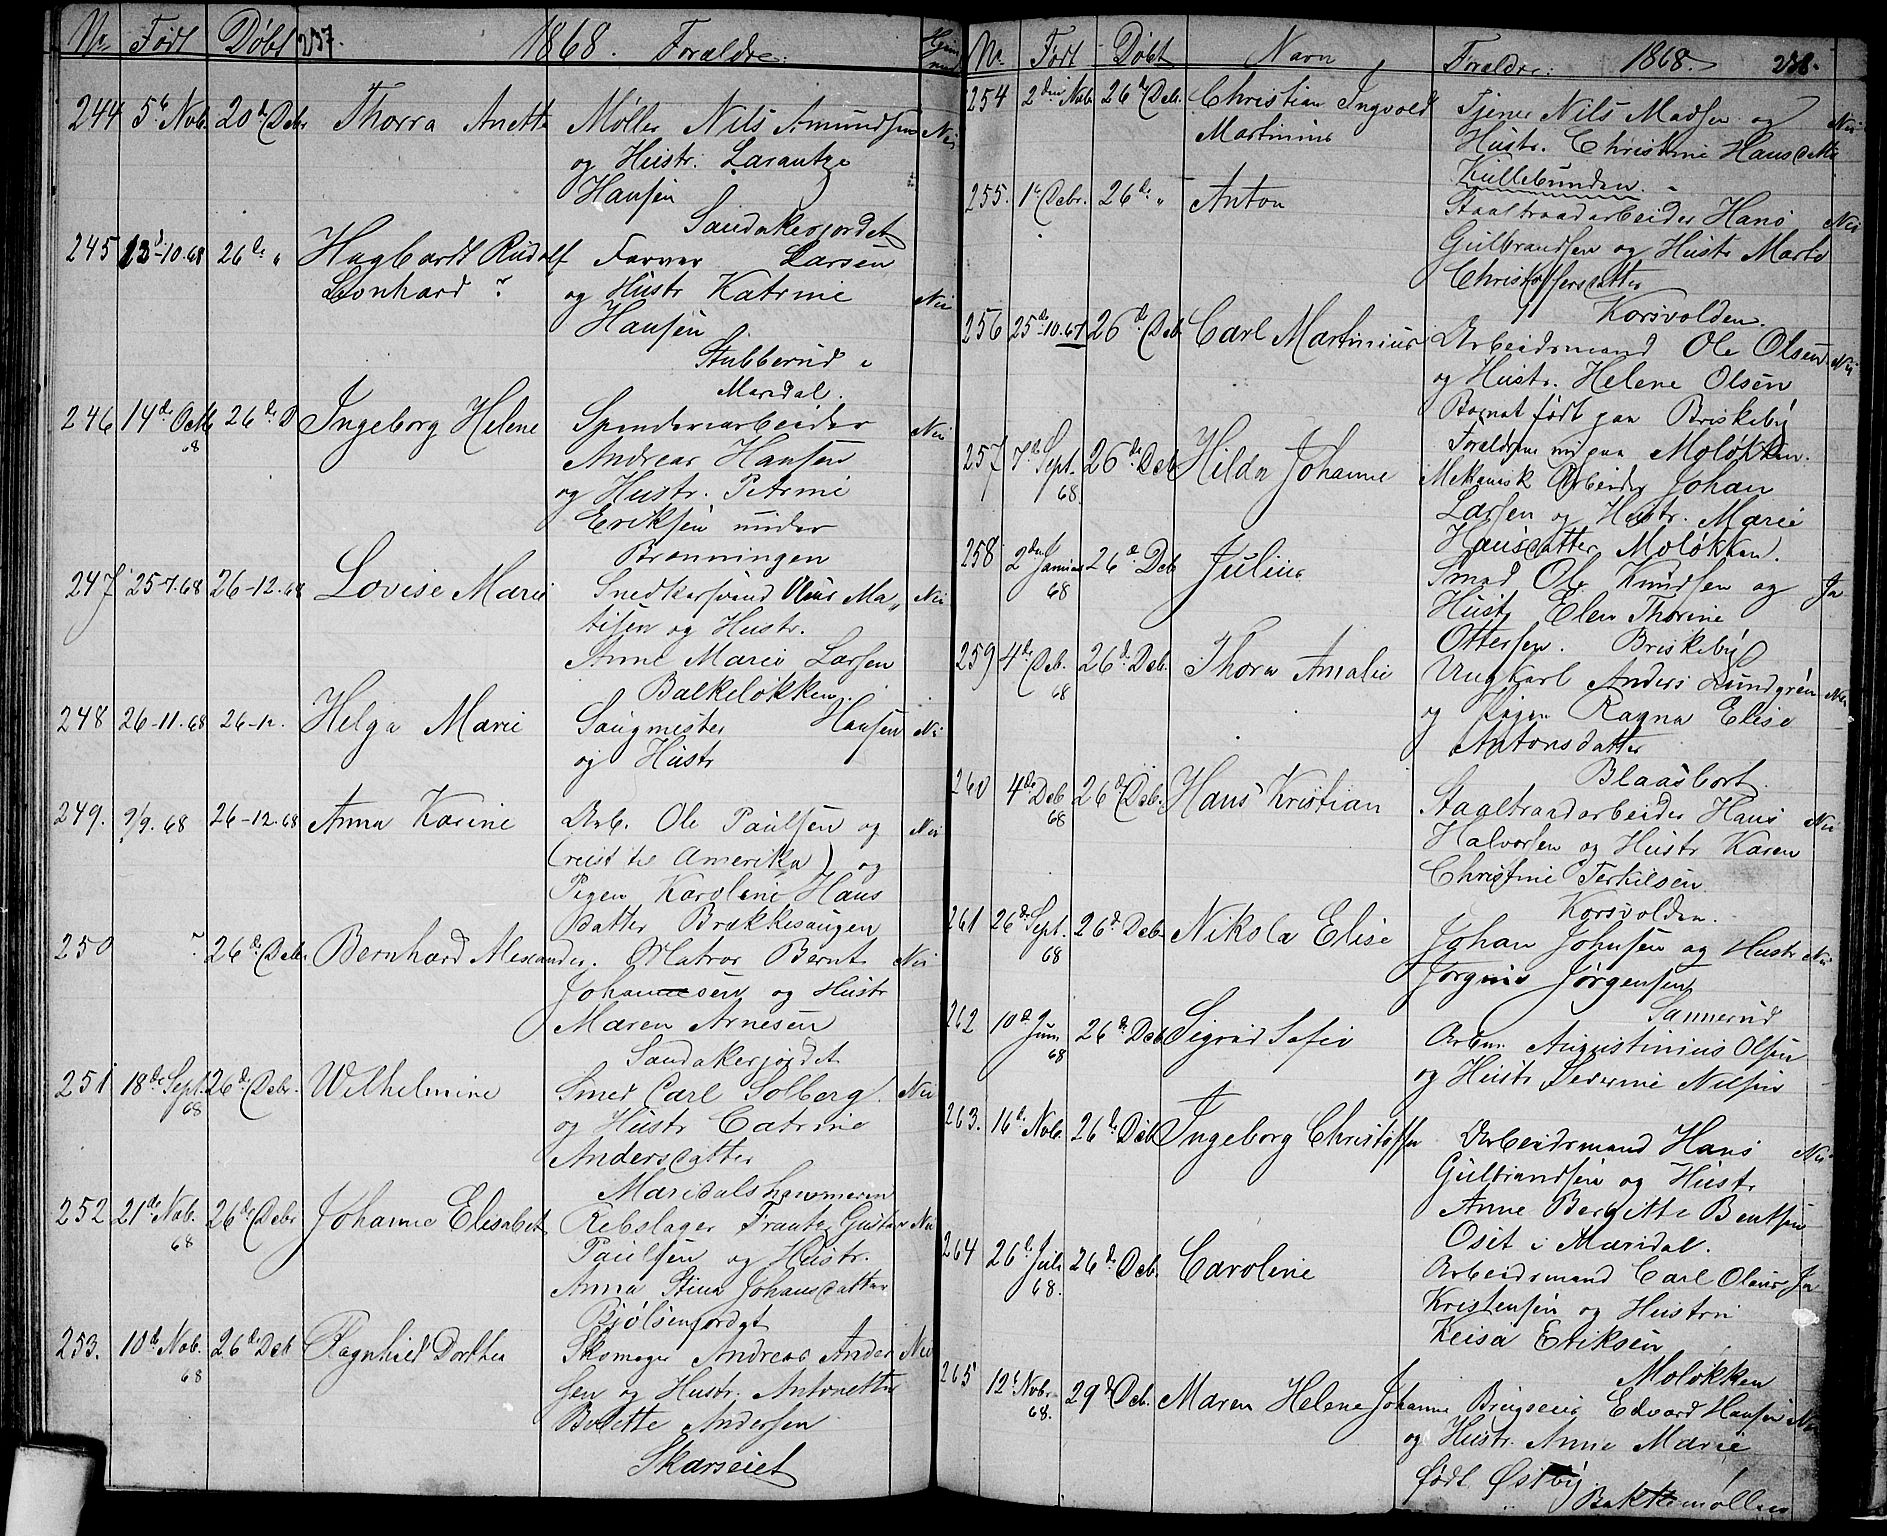 No. Født Døbt 237. 1868. Forældre.
244 5te Nob. 20de Debr Thorra Anette Møller Nils Amundsen Nei
og Hustr. Larantze
Hansen
Sandakerjordet
245 13-10-68 26de " Hagbardt Rudolf Farver Larsen
Leonhard ? og Hustr Katrine Nei
Hansen
Stubberud i
Maridal.
246 14de Octb 68 26de D Ingeborg Helene Spinderiarbeider Nei
Andreas Hansen
og Hustr. Petrine
Eriksen under
Brænningen
247 25-7-68 26-12-68 Lovise Marie Snedkersvend Olaus Ma- Nei
tisen og Hustr.
Anne Marie Larsen
Balkeløkken.
248 26-11-68 26-12. Helga Marie Saugmester Hansen Nei
og Hustr
249. 9/9. 68 26-12-68 Anna Karine Arb. Ole Paulsen og Nei
(reist til Amerika) og
Pigen Karoline Hans
datter Brækkesaugen
250 ? 26de Debr Bernhard Alexander. Matros Bernt Nei
Johannesen og Hustr
Maren Arnesen
Sandakerjordet
251 18de Sept. 68 26de Debr. Wilhelmine Smed Carl Solberg Nei
og Hustr Catrine
Andersdatter
Maridalshammeren
252 21de Nob. 68 26de Debr Johanne Elisabet Rebslager Frantz Gustav Nei
Paulsen og Hustr.
Anna Stina Johansdatter
Bjølsenjordet
253. 10de Nob. 68 26de Deb Ragnhild Dorthea Skomager Andreas Ander Nei
sen og Hustr. Antonette
Bolette Andersen
Skarseiet
No. Født Døbt Navn Forældre. 1868. 238.
254 2den Nob. 26de Debr. Christian Ingvold Tjener Nils Madsen og Nei
Martinius Hustr. Christine Hansdatter
Kullebunden.
255. 1te Debr. 26de " Anton Staaltraadarbeider Hans Nei
Gulbrandsen og Hustr Marte
Christoffersdatter
Korsvolden.
256 25de-10.67 26de Deb. Carl Martinius Arbeidsmand Ole Olsen Nei
og Hustr. Helene Olsen
Barnet født paa Briskeby
Forældrene nu paa Moløkken.
257 7de Sept. 68. 26de Deb Hilda Johanne Mekanisk Arbeider Johan
Larsen og Hustr. Marie
Hansdatter Moløkken.
258 2den Januar 68 26de Deb Julius Smed Ole Knudsen og Ja
Hustr Elen Thorine
Ottersen. Briskeby
259 4de Deb. 68 26de Deb. Thora Amalie Ungkarl Anders Lundgren Nei
og Pigen Ragna Elise
Antonsdatter
Blaasbort.
260 4de Deb 68 26de Deb. Hans Kristian Staaltraadarbeider Hans Nei
Halvorsen og Hustr Karen
Christine Terkelsen
Korsvolden.
261 26de Sept. 68 26de Deb. Nikola Elise Johan Johnsen og Hustr Nei
Jørgine Jørgensen
Sannerud
262 10de Juni 68 26de Deb Sigrid Sofie Arbm. Augustinius Olsen
og Hustr Severine Nilsen
263. 16de Nob. 26de Deb Ingeborg Christoffa Arbeidsmand Hans Nei
Gulbrandsen og Hustr
Anne Bergitte Bentsen
Oset i Maridal.
264 26de Juli 68. 26de Deb. Caroline Arbeidsmand Carl Olaus Ja
Kristensen og Hustru
Keisa Eriksen
Moløkken
265 12te Nobr. 68. 29de Deb. Maren Helene Johanne Brugseier Edvard Hansen Nei
og Hustr. Anne Marie
født Østby
Bakkemøllen